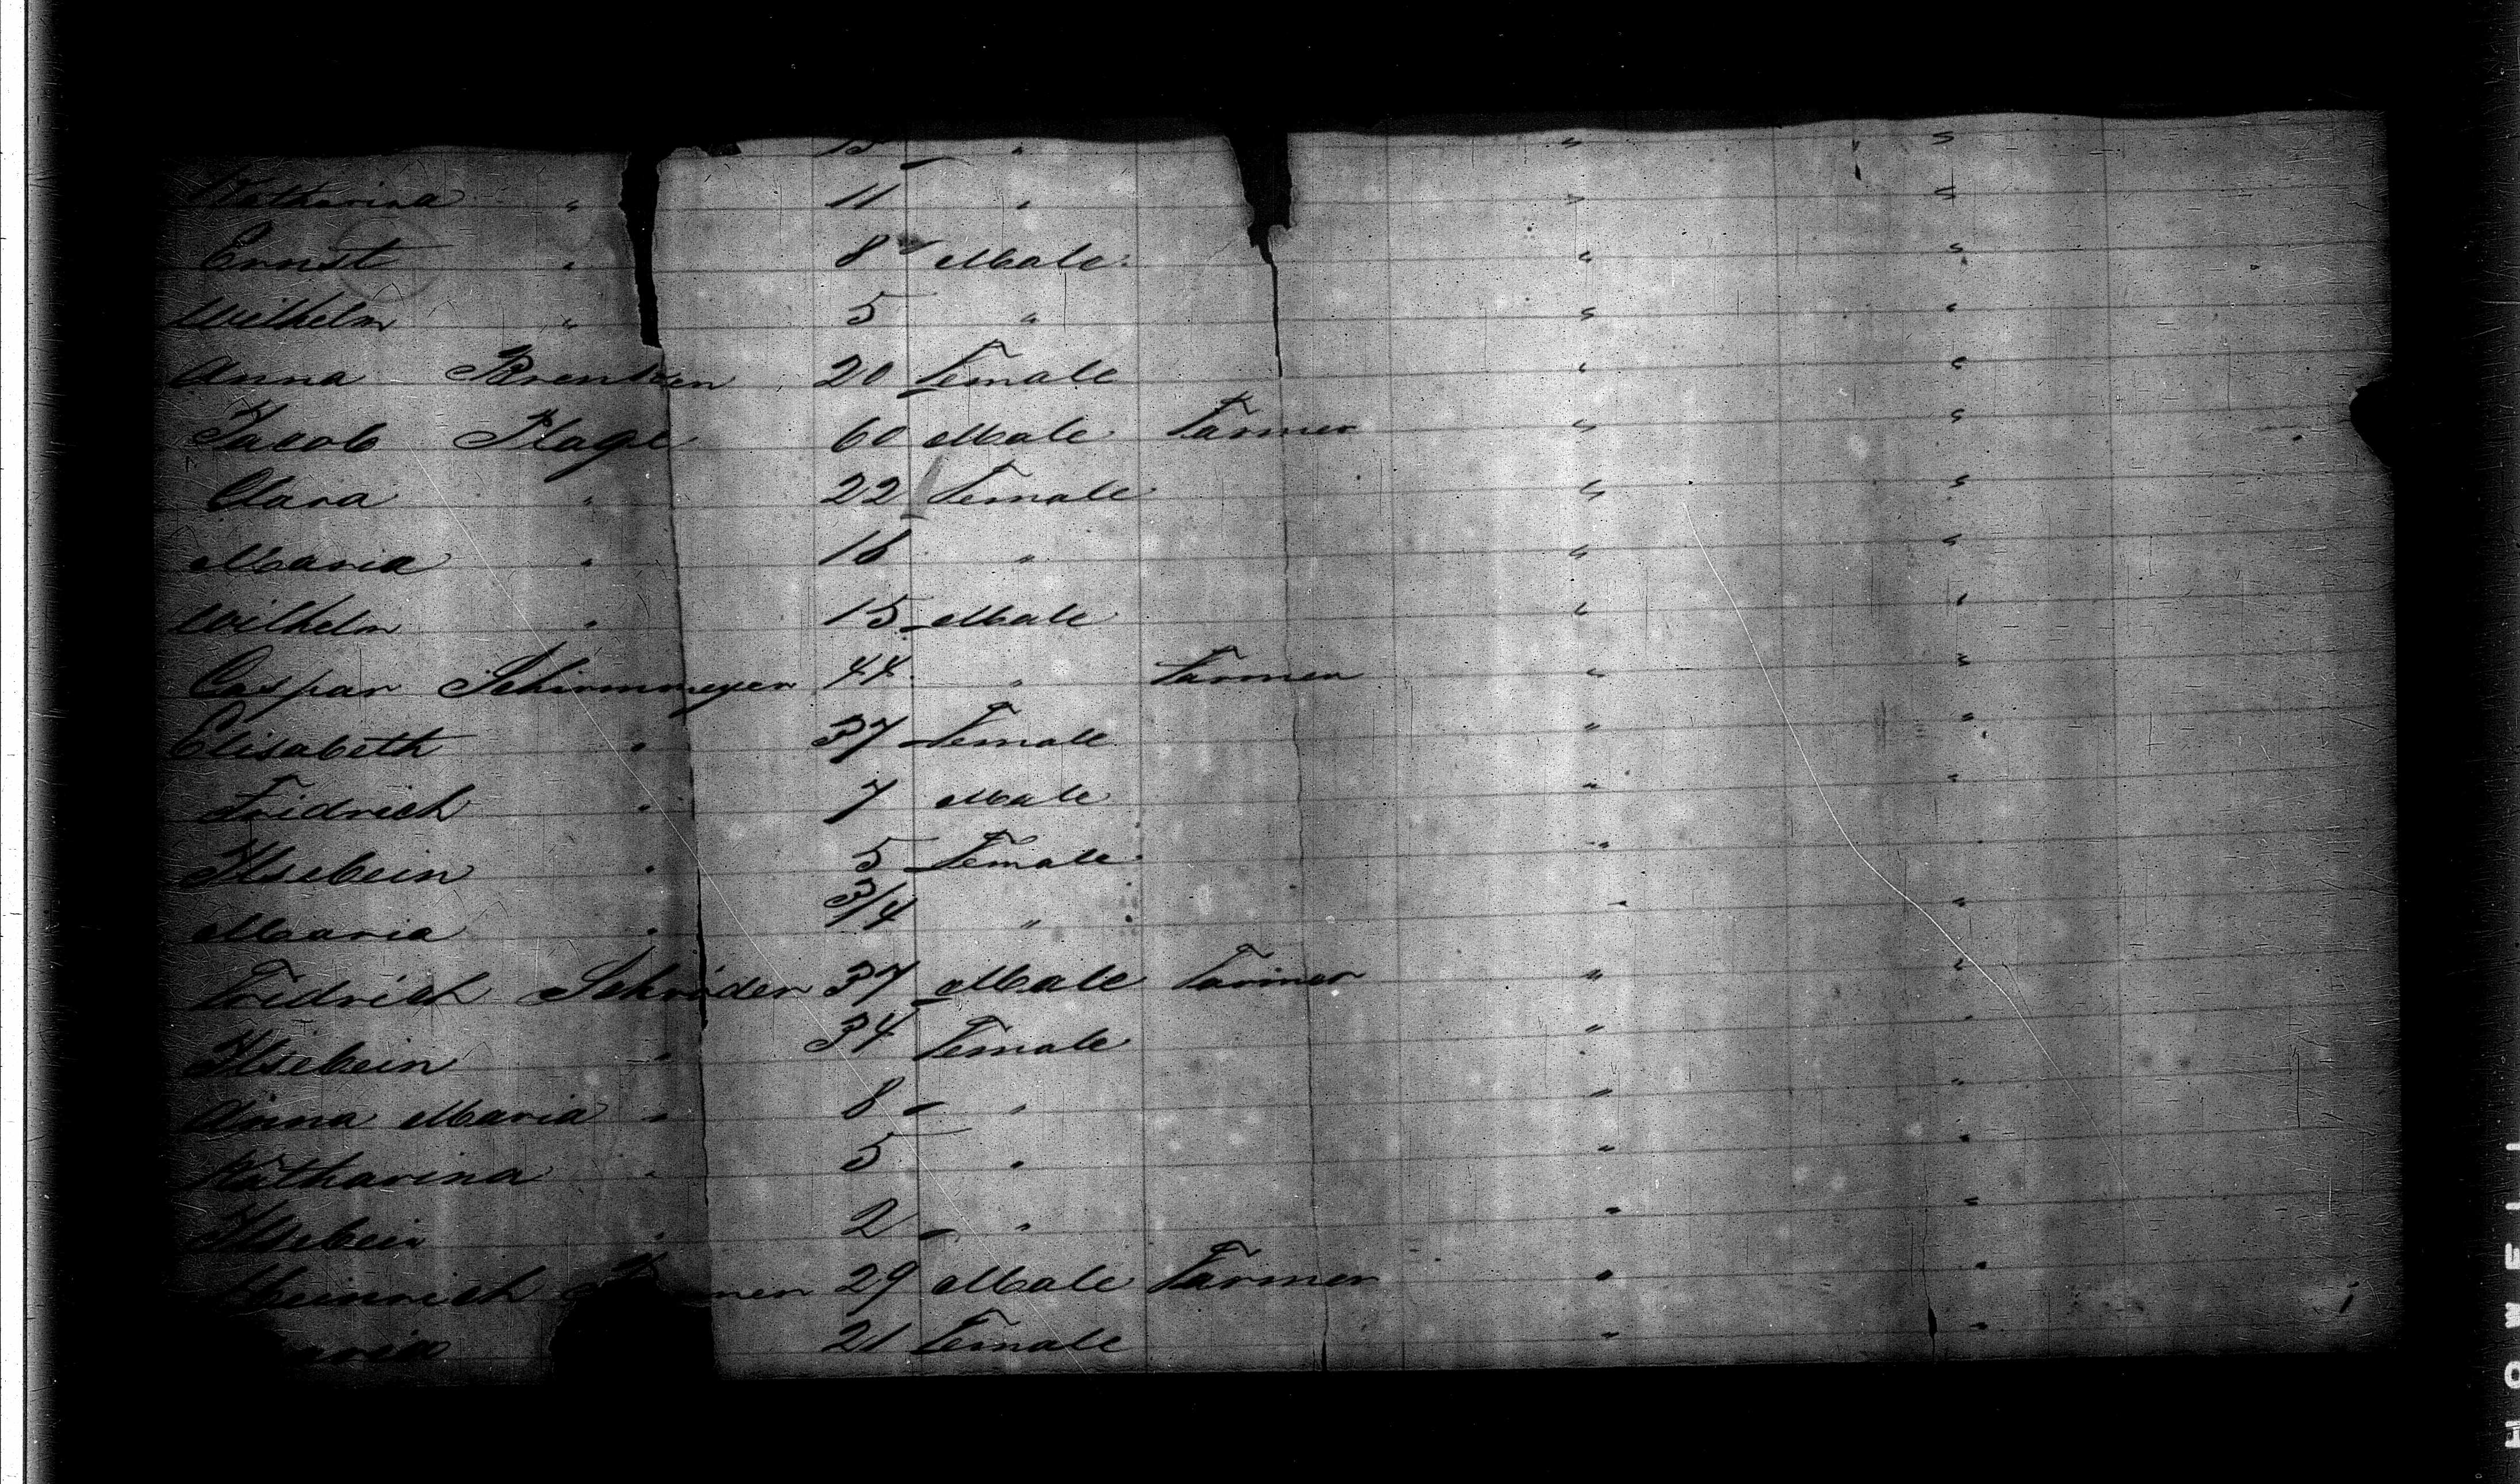 13 " " "
Katharina " 11 " " "
Ernst " 8 Male " "
Wilhelm " 5 " " "
Anna 20 Female " "
Jacob Hage 60 Male Farmer " "
Clara " 22 Female " "
Maria " 16 " " "
Wilhelm " 15 Male " "
Caspar Schirmmeyer 44 " Farmer " "
Elisabeth " 37 Female " "
Fridrich " 7 Male " "
Ilsebein " 5 Female "
Maaria " 3/4 " " "
Fridrich Schröder 37 Male Farmer " "
Ilsebein " 34 Female " "
Anna Maria " 8 " " "
Katharina " 5 " " "
Ilsebein " 2 " " "
Heinrich 29 Male Farmer " "
21 Female " "
HOWELL